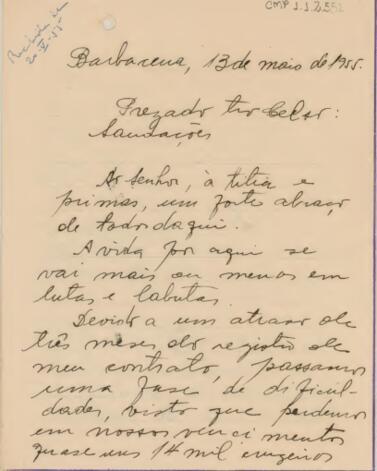 CMP 1.1.2.552
Recebida em
20-V-55
Barbacena, 13 de maio de 1955.
Prezado tio Celso:
Saudações
Ao senhor, à titia e
primas, um forte abraço
de todos daqui.
A vida por aqui se
vai mais ou menos em
lutas e labutas.
Devido a um atraso de
três meses do registro de
meu contrato, passamos
uma fase de dificul-
dades, visto que perdemos
em nossos vencimentos
quase uns 14 mil cruzeiros